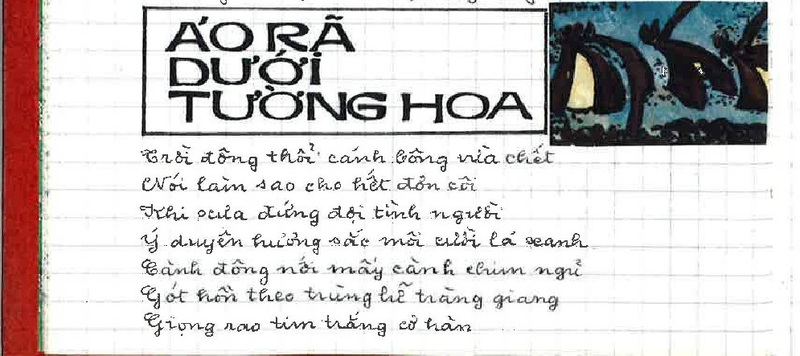 ÁO RÃ
DƯỚI
TƯỜNG HOA
Trời đông thổi cánh bông vừa chết
Nói làm sao cho hết đơn côi
Khi xưa đứng đợi tình người
Ý duyên hương sắc môi cười lá xanh
Cành đông nối mấy cành chim ngủ
Gót hồn theo trùng hễ tràng giang
Giọng rao tim trắng cơ hàn